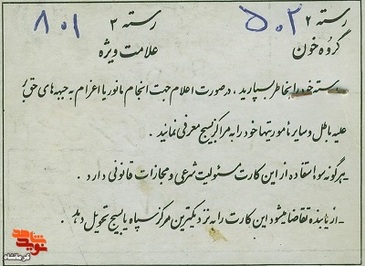 رسته ۲ ۵۰۲ رسته ۳ ۸۰۱
گروه خون علامت ویژه
- رسته خود را بخاطر بسپارید، در صورت اعلام جهت انجام مانور یا اعزام به جبهه های حق بر
علیه باطل و سایر مأموریتها خود را به مراکز بسیج معرفی نمائید.
- هرگونه سوء استفاده از این کارت مسئولیت شرعی و مجازات قانونی دارد.
- از یابنده تقاضا میشود این کارت را به نزدیکترین مرکز سپاه یا بسیج تحویل دهد.
نوید شاهد
کرمانشاه